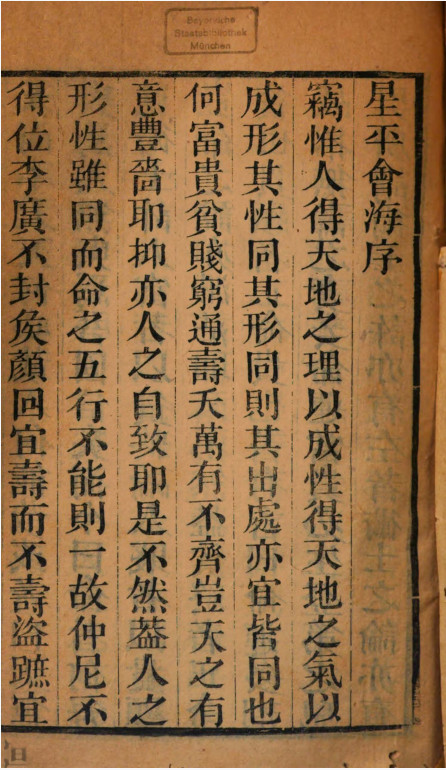 Bayerische
Staatsbibliothek
München
星平會海序
竊惟人得天地之理以成性得天地之氣以
成形其性同其形同則其出處亦宜皆同也
何富貴貧賤窮通壽夭萬有不齊豈天之有
意豐嗇耶抑亦人之自致耶是不然葢人之
形性雖同而命之五行不能則一故仲尼不
得位李廣不封矦顏回宜壽而不壽盜蹠宜